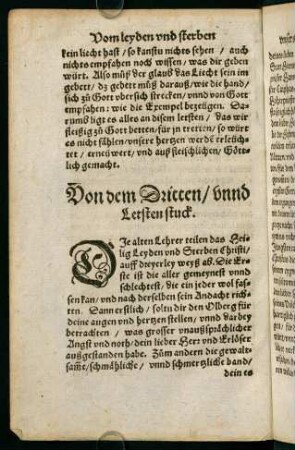 Vom leyden vnd sterben
kein liecht hast / so kanstu nichts sehen / auch
nichts empfahen noch wissen / was dir geben
würt. Also můß der glaub das Liecht sein im
gebett / dz gebett můß darauß / wie die hand /
sich zů Gott vber sich strecken / vnnd von Gott
empfahen: wie die Exempel bezeügen. Da-
rumb ligt es alles an disem letsten / das wir
fleißig zů Gott betten / für jn tretten / so würt
es nicht fählen / vnsere hertzen werdē erleüch-
tet / ernewert / vnd auß fleischlichen / Gött-
lich gemacht.
Von dem Dritten / vnnd
Letsten stuck.
DJe alten Lehrer teilen das Hei-
lig Leyden vnd Sterben Christi /
auff dreyerley weyß ab. Die Er-
ste ist die aller gemeynest vnnd
schlechtest / die ein jeder wol fas-
sen kan / vnd nach derselben sein Andacht rich-
ten. Dann erstlich / soltu dir den Ölberg für
deine augen vnd hertzen stellen / vnnd darbey
betrachten / was grosser vnaußsprächlicher
Angst vnd noth / dein lieber Herr vnd Erlöser
außgestanden habe. Zům andern die gewalt-
same / schmähliche / vnnd schmertzliche band /
dein es